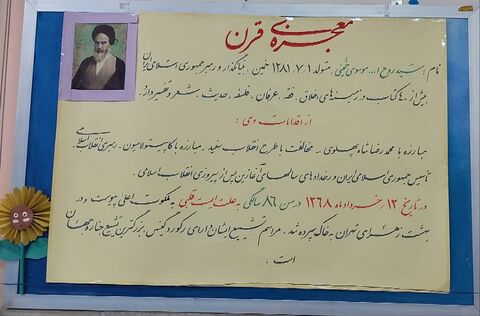 معجزه‌ی قرن
نام : سید روح ا... موسوی خمینی ، متولد ۱/۷/۱۲۸۱ خمین ، بنیانگذار و رهبر جمهوری اسلامی ایران
بیش از ده‌ها کتاب در زمینه‌های اخلاق . فقه . عرفان . فلسفه . حدیث . شعر و تفسیر دارد .
از اقدامات وی :
مبارزه با محمدرضا شاه پهلوی - مخالفت با طرح انقلاب سفید - مبارزه با کاپیتولاسیون - رهبری انقلاب اسلامی
تاسیس جمهوری اسلامی ایران و رخدادهای سالهای آغازین پس از پیروزی انقلاب اسلامی .
در تاریخ ۱۳ خرداد ماه ۱۳۶۸ در سن ۸۶ سالگی به علت ایست قلبی به ملکوت اعلی پیوست و در
بهشت زهرای تهران به خاک سپرده شد . مراسم تشییع ایشان دارای رکورد گینس بزرگترین تشییع جنازه جهان
است .